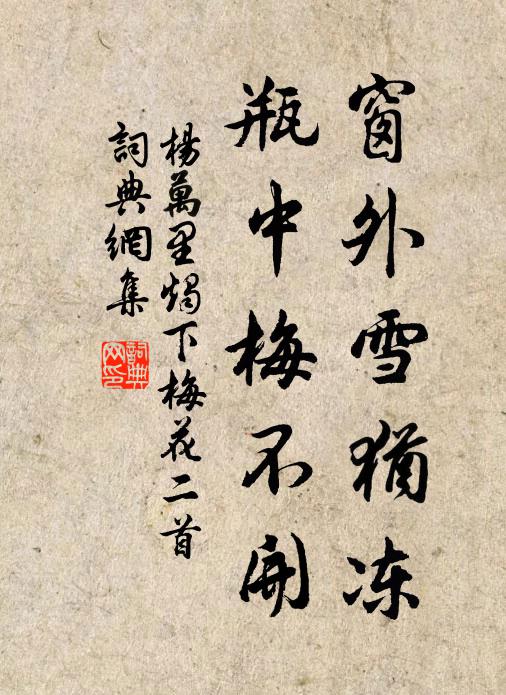 窗外雪猶冻
瓶中梅不開
楊萬里燭下梅花二首
詞典網集
詞典
网印